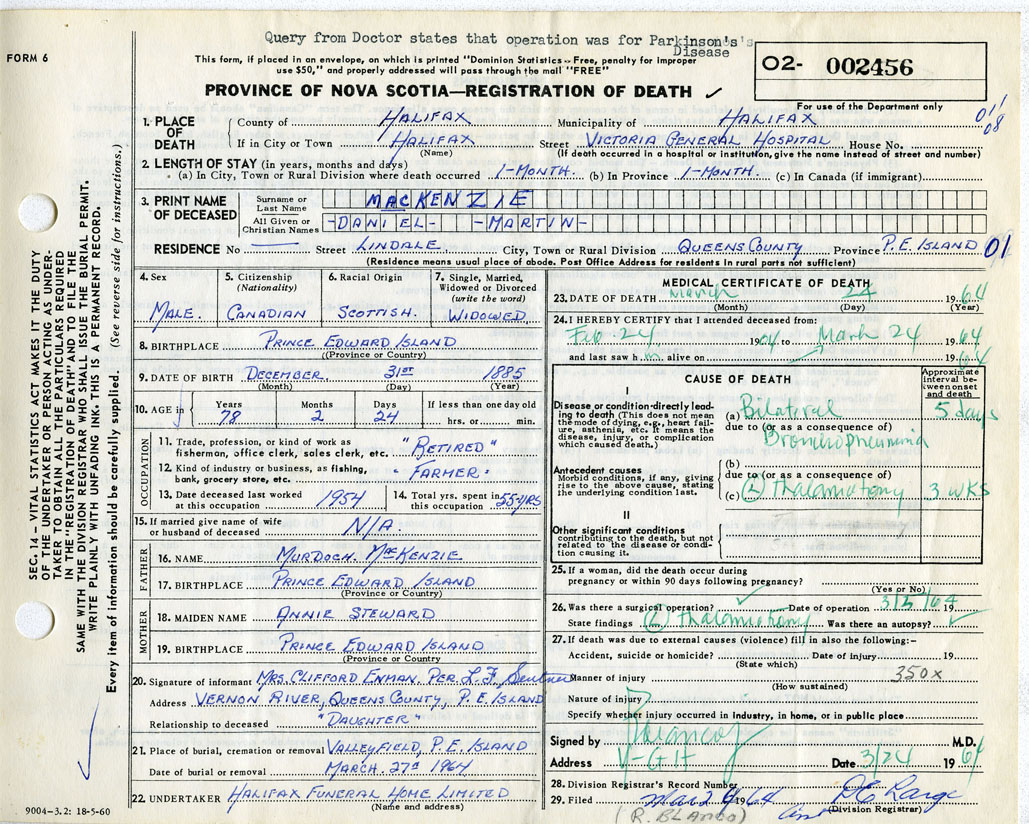 Query from Doctor states that operation was for Parkinson's's
Disease
FORM 6
This form, if placed in an envelope, on which is printed "Dominion Statistics - Free, penalty for improper
use $50," and properly addressed will pass through the mail "FREE"
O2- 002456
PROVINCE OF NOVA SCOTIA—REGISTRATION OF DEATH ✓
For use of the Department only
01/
08
1. PLACE OF DEATH
County of HALIFAX Municipality of HALIFAX
If in City or Town HALIFAX Street VICTORIA GENERAL HOSPITAL House No.
(Name) (If death occurred in a hospital or institution, give the name instead of street and number)
2. LENGTH OF STAY (in years, months and days)
(a) In City, Town or Rural Division where death occurred 1-MONTH. (b) In Province 1-MONTH. (c) In Canada (if immigrant)
3. PRINT NAME OF DECEASED
Surname or Last Name MACKENZIE
All Given or Christian Names -DANIEL- -MARTIN-
RESIDENCE No Street LINDALE City, Town or Rural Division QUEENS COUNTY Province P.E. ISLAND 01
(Residence means usual place of abode. Post Office Address for residents in rural parts not sufficient)
4. Sex MALE.
5. Citizenship (Nationality) CANADIAN
6. Racial Origin SCOTTISH.
7. Single, Married, Widowed or Divorced (write the word) WIDOWED
8. BIRTHPLACE PRINCE EDWARD ISLAND
(Province or Country)
9. DATE OF BIRTH DECEMBER 31ST 1885
(Month) (Day) (Year)
10. AGE in Years Months Days If less than one day old
78 2 24 hrs. or min.
OCCUPATION
11. Trade, profession, or kind of work as
fisherman, office clerk, sales clerk, etc. "RETIRED"
12. Kind of industry or business, as fishing,
bank, grocery store, etc. "FARMER"
13. Date deceased last worked
at this occupation 1954
14. Total yrs. spent in
this occupation 55-YRS
15. If married give name of wife
or husband of deceased N/A.
FATHER
16. NAME MURDOCH. MacKENZIE
17. BIRTHPLACE PRINCE EDWARD ISLAND
(Province or Country)
MOTHER
18. MAIDEN NAME ANNIE STEWARD
19. BIRTHPLACE PRINCE EDWARD ISLAND
(Province or Country)
20. Signature of informant MRS. CLIFFORD ENMAN. PER. L.F.
Address VERNON RIVER, QUEENS COUNTY, P.E. ISLAND
Relationship to deceased "DAUGHTER"
21. Place of burial, cremation or removal VALLEYFIELD, P.E. ISLAND
Date of burial or removal MARCH. 27th 1964
22. UNDERTAKER HALIFAX FUNERAL HOME LIMITED
(Name and address)
9004-3.2: 18-5-60
MEDICAL CERTIFICATE OF DEATH
23. DATE OF DEATH March 24 1964
(Month) (Day) (Year)
24. I HEREBY CERTIFY that I attended deceased from:
Feb 24 1964 to March 24 1964
and last saw h im alive on 1964
CAUSE OF DEATH
Approximate interval between onset and death
I
Disease or condition directly leading to death (This does not mean the mode of dying, e.g., heart failure, asthenia, etc. It means the disease, injury, or complication which caused death.)
(a) Bilateral 5 days
due to (or as a consequence of)
Bronchopneumonia
Antecedent causes
Morbid conditions, if any, giving rise to the above cause, stating the underlying condition last.
(b)
due to (or as a consequence of)
(c) (L) thalamotomy 3 wks
II
Other significant conditions
contributing to the death, but not related to the disease or condition causing it.
25. If a woman, did the death occur during
pregnancy or within 90 days following pregnancy?
(Yes or No)
26. Was there a surgical operation? ✓ Date of operation 3/3/64 19
State findings (L) thalamotomy Was there an autopsy? ✓
27. If death was due to external causes (violence) fill in also the following:-
Accident, suicide or homicide? Date of injury 19
(State which)
Manner of injury 350X
(How sustained)
Nature of injury
Specify whether injury occurred in industry, in home, or in public place
Signed by RBlanco M.D.
Address V-G-H Date 3/24 1964
28. Division Registrar's Record Number
29. Filed Mar 24 1964
(Division Registrar)
(R. BLANCO)
SEC. 14 — VITAL STATISTICS ACT MAKES IT THE DUTY
OF THE UNDERTAKER OR PERSON ACTING AS UNDER-
TAKER TO OBTAIN ALL THE PARTICULARS REQUIRED
IN THE "REGISTRATION OF DEATH" AND TO FILE THE
SAME WITH THE DIVISION REGISTRAR WHO SHALL ISSUE THE BURIAL PERMIT.
WRITE PLAINLY WITH UNFADING INK. THIS IS A PERMANENT RECORD.
Every item of information should be carefully supplied. (See reverse side for instructions.)